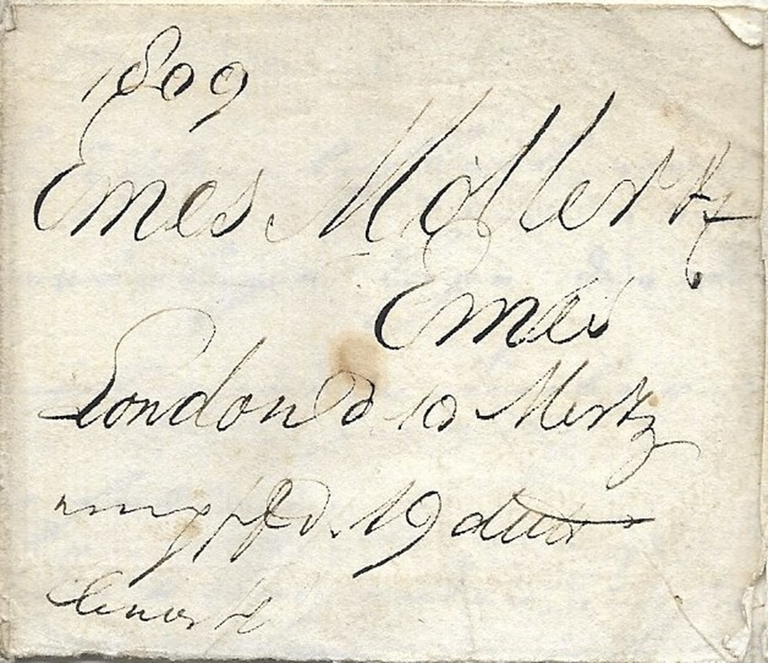 1809
Emes Möller &
Emes
London d 10 Mertz
empfd. 19 ditto